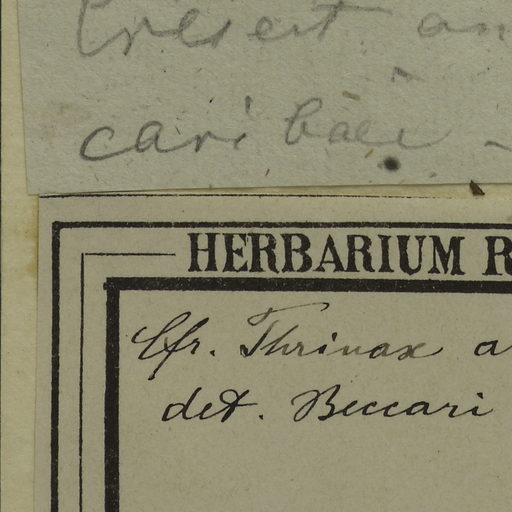 an
caribaei -
HERBARIUM R
Cfr. Thrinax a
det. Beccari